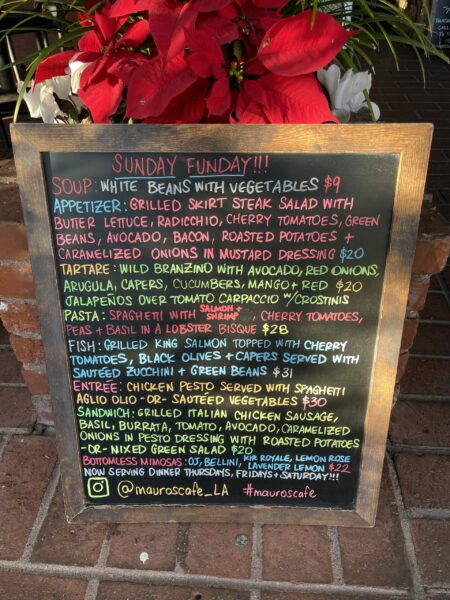 SUNDAY FUNDAY!!!
SOUP: WHITE BEANS WITH VEGETABLES $9
APPETIZER: GRILLED SKIRT STEAK SALAD WITH
BUTTER LETTUCE, RADICCHIO, CHERRY TOMATOES, GREEN
BEANS, AVOCADO, BACON, ROASTED POTATOES +
CARAMELIZED ONIONS IN MUSTARD DRESSING $20
TARTARE: WILD BRANZINO WITH AVOCADO, RED ONIONS,
ARUGULA, CAPERS, CUCUMBERS, MANGO + RED $20
JALAPEÑOS OVER TOMATO CARPACCIO W/CROSTINIS
PASTA: SPAGHETTI WITH SALMON + SHRIMP, CHERRY TOMATOES,
PEAS + BASIL IN A LOBSTER BISQUE $28
FISH: GRILLED KING SALMON TOPPED WITH CHERRY
TOMATOES, BLACK OLIVES + CAPERS SERVED WITH
SAUTÉED ZUCCHINI + GREEN BEANS $31
ENTRÉE: CHICKEN PESTO SERVED WITH SPAGHETTI
AGLIO OLIO -OR- SAUTÉED VEGETABLES $30
SANDWICH: GRILLED ITALIAN CHICKEN SAUSAGE,
BASIL, BURRATA, TOMATO, AVOCADO, CARAMELIZED
ONIONS IN PESTO DRESSING WITH ROASTED POTATOES
-OR- MIXED GREEN SALAD $20
BOTTOMLESS MIMOSAS: OJ, BELLINI, KIR ROYALE, LEMON ROSE
LAVENDER LEMON $22
NOW SERVING DINNER THURSDAYS, FRIDAYS + SATURDAY!!!
@mauroscafe_LA #mauroscafe